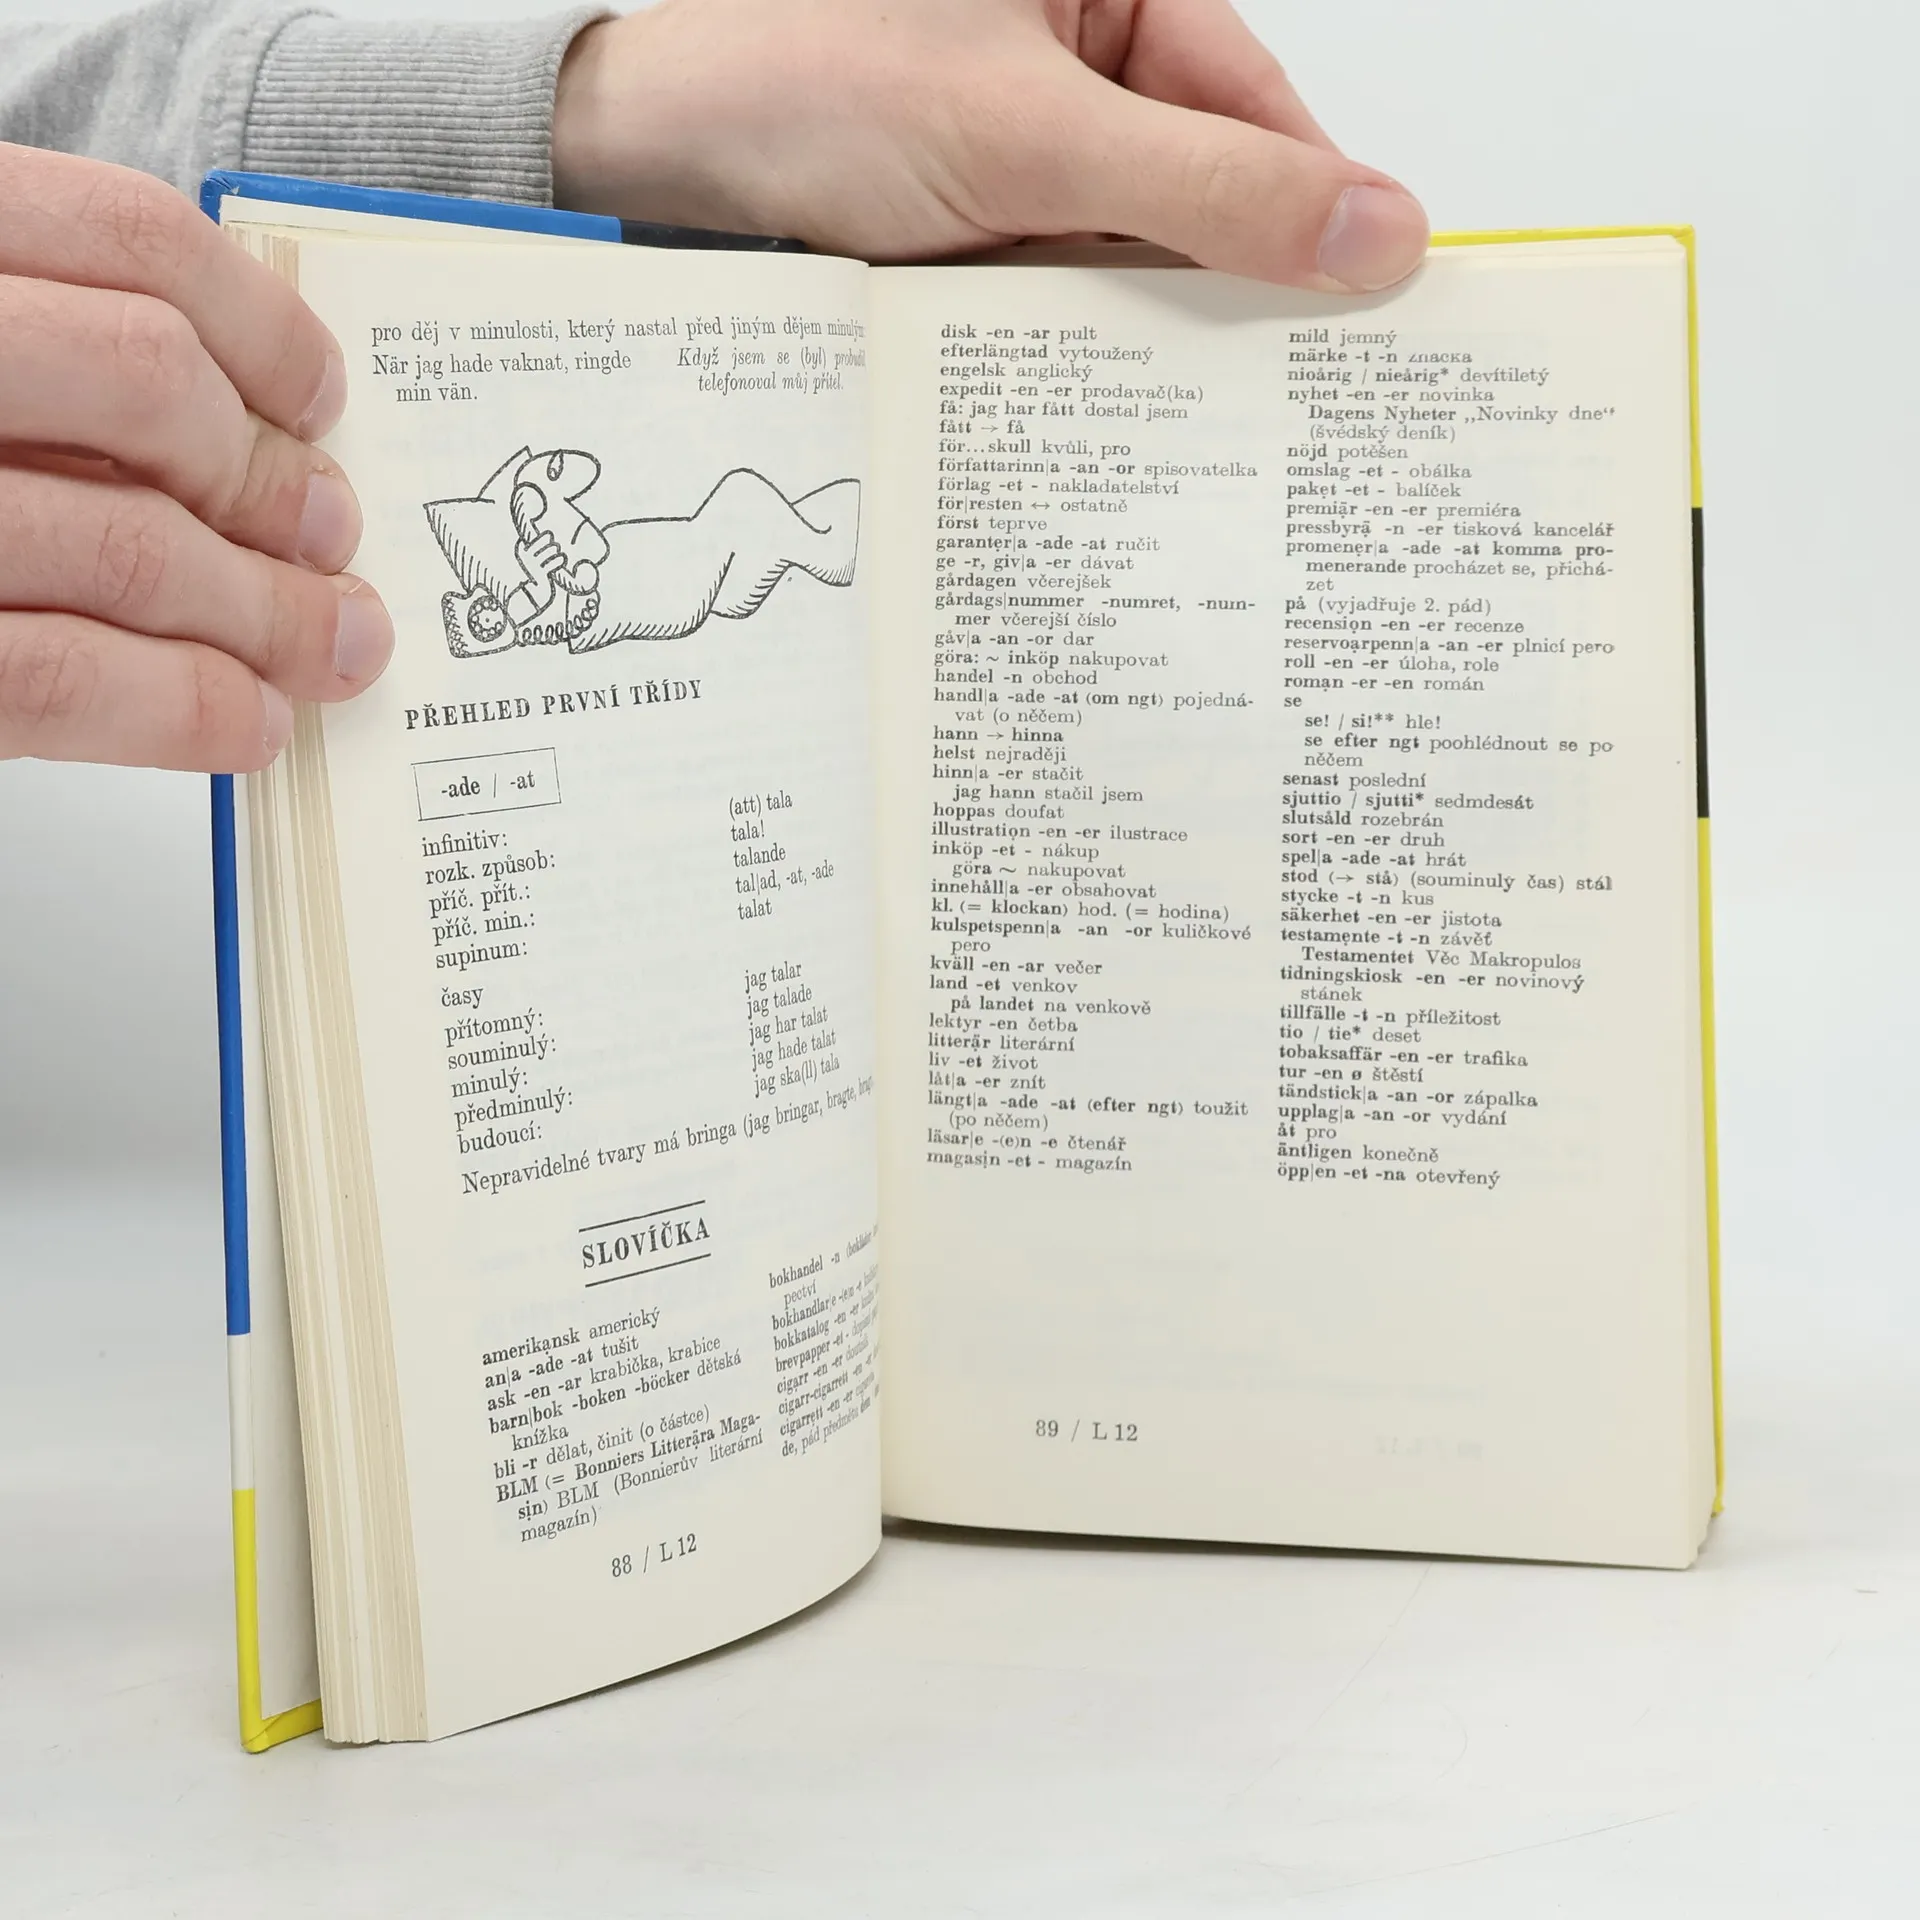 pro děj v minulosti, který nastal před jiným dějem
När jag hade vaknat, ringde
min vän.
Když jsem se (byl)
telefonoval můj přítel.
PŘEHLED PRVNÍ TŘÍDY
-ade / -at
infinitiv:
rozk. způsob:
příč. přít.:
příč. min.:
supinum:
(att) tala
tala!
talande
tal|ad, -at, -ade
talat
časy
přítomný:
souminulý:
minulý:
předminulý:
budoucí:
jag talar
jag talade
jag har talat
jag hade talat
jag ska(ll) tala
Nepravidelné tvary má bringa (jag bringar, bragte,
SLOVÍČKA
amerikansk americký
an|a -ade -at tušit
ask -en -ar krabička, krabice
barn|bok -boken -böcker dětská
knížka
bli -r dělat, činit (o částce)
BLM (= Bonniers Litterära Maga-
sin) BLM (Bonnierův literární
magazín)
bokhandel -n
pectví
bokhandlar|e -(e)n -e
bokkatalog -en -er
brevpapper -et -
cigarr -en -er doutník
cigarr-cigarrett -en -er
cigarrett -en -er cigareta
de, pád předmětu dem
88 / L 12
disk -en -ar pult
efterlängtad vytoužený
engelsk anglický
expedit -en -er prodavač(ka)
få: jag har fått dostal jsem
fått → få
för...skull kvůli, pro
författarinn|a -an -or spisovatelka
förlag -et - nakladatelství
för|resten ↔ ostatně
först teprve
garanter|a -ade -at ručit
ge -r, giv|a -er dávat
gårdagen včerejšek
gårdags|nummer -numret, -num-
mer včerejší číslo
gåv|a -an -or dar
göra: ~ inköp nakupovat
handel -n obchod
handl|a -ade -at (om ngt) pojedná-
vat (o něčem)
hann → hinna
helst nejraději
hinn|a -er stačit
jag hann stačil jsem
hoppas doufat
illustration -en -er ilustrace
inköp -et - nákup
göra ~ nakupovat
innehåll|a -er obsahovat
kl. (= klockan) hod. (= hodina)
kulspetspenn|a -an -or kuličkové
pero
kväll -en -ar večer
land -et venkov
på landet na venkově
lektyr -en četba
litterär literární
liv -et život
låt|a -er znít
längt|a -ade -at (efter ngt) toužit
(po něčem)
läsar|e -(e)n -e čtenář
magasin -et - magazín
mild jemný
märke -t -n značka
nioårig / nieårig* devítiletý
nyhet -en -er novinka
Dagens Nyheter „Novinky dne“
(švédský deník)
nöjd potěšen
omslag -et - obálka
paket -et - balíček
premiär -en -er premiéra
pressbyrå -n -er tisková kancelář
promener|a -ade -at komma pro-
menerande procházet se, přichá-
zet
på (vyjadřuje 2. pád)
recension -en -er recenze
reservoarpenn|a -an -er plnicí pero
roll -en -er úloha, role
roman -er -en román
se
se! / si!** hle!
se efter ngt poohlédnout se po
něčem
senast poslední
sjuttio / sjutti* sedmdesát
slutsåld rozebrán
sort -en -er druh
spel|a -ade -at hrát
stod (→ stå) (souminulý čas) stál
stycke -t -n kus
säkerhet -en -er jistota
testamente -t -n závěť
Testamentet Věc Makropulos
tidningskiosk -en -er novinový
stánek
tillfälle -t -n příležitost
tio / tie* deset
tobaksaffär -en -er trafika
tur -en ø štěstí
tändstick|a -an -or zápalka
upplag|a -an -or vydání
åt pro
äntligen konečně
öpp|en -et -na otevřený
89 / L 12